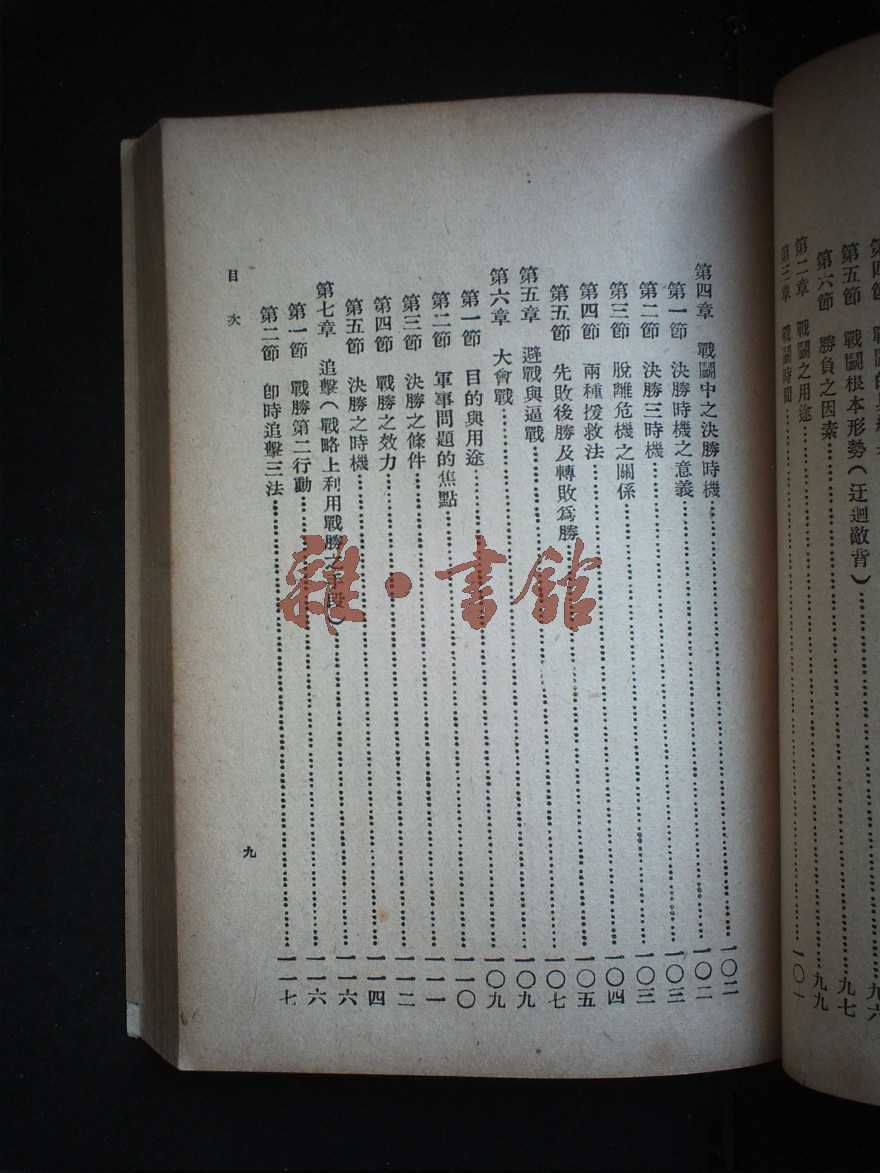 第四節
第五節 戰鬬根本形勢(迂迴敵背)……九六
第六節 勝負之因素……九七
第二章 戰鬬之用途……九九
第三章 戰鬬時間……一〇一
第四章 戰鬬中之決勝時機……一〇二
第一節 決勝時機之意義……一〇二
第二節 決勝三時機……一〇三
第三節 脫離危機之關係……一〇三
第四節 兩種援救法……一〇四
第五節 先敗後勝及轉敗爲勝……一〇五
第五章 避戰與逼戰……一〇七
第六章 大會戰……一〇九
第一節 目的與用途……一〇九
第二節 軍事問題的焦點……一一〇
第三節 決勝之條件……一一一
第四節 戰勝之效力……一一二
第五節 決勝之時機……一一四
第七章 追擊(戰略上利用戰勝之手段)……一一六
第一節 戰勝第二行動……一一六
第二節 卽時追擊三法……一一七
目次
九
雜·書館